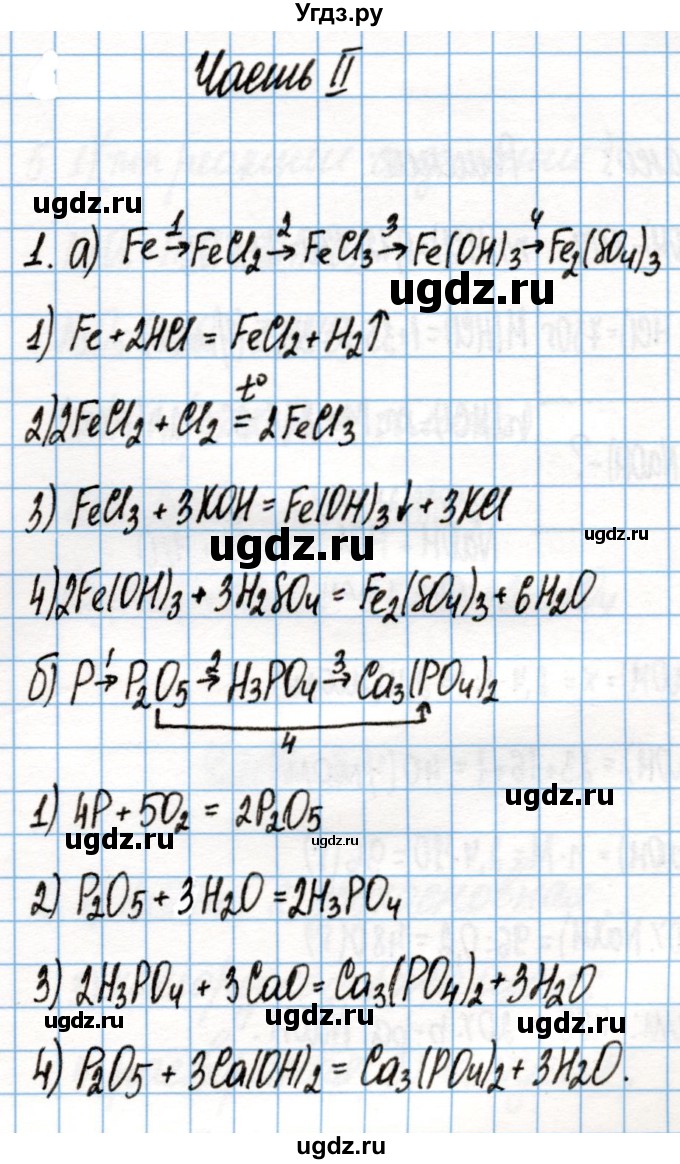 Угдз.ру
Часть II
ugdz.ru
1. а) Fe 1→ FeCl2 2→ FeCl3 3→ Fe(OH)3 4→ Fe2(SO4)3
ugdz.ru
ugdz.ru
1) Fe + 2HCl = FeCl2 + H2↑
2) 2FeCl2 + Cl2 =t° 2FeCl3
3) FeCl3 + 3KOH = Fe(OH)3↓ + 3KCl
ugdz.ru
ugdz.ru
4) 2Fe(OH)3 + 3H2SO4 = Fe2(SO4)3 + 6H2O
б) P 1→ P2O5 2→ H3PO4 3→ Ca3(PO4)2
4
ugdz.ru
1) 4P + 5O2 = 2P2O5
ugdz.ru
ugdz.ru
2) P2O5 + 3H2O = 2H3PO4
3) 2H3PO4 + 3CaO = Ca3(PO4)2 + 3H2O
ugdz.ru
ugdz.ru
ugdz.ru
4) P2O5 + 3Ca(OH)2 = Ca3(PO4)2 + 3H2O.
ugdz.ru